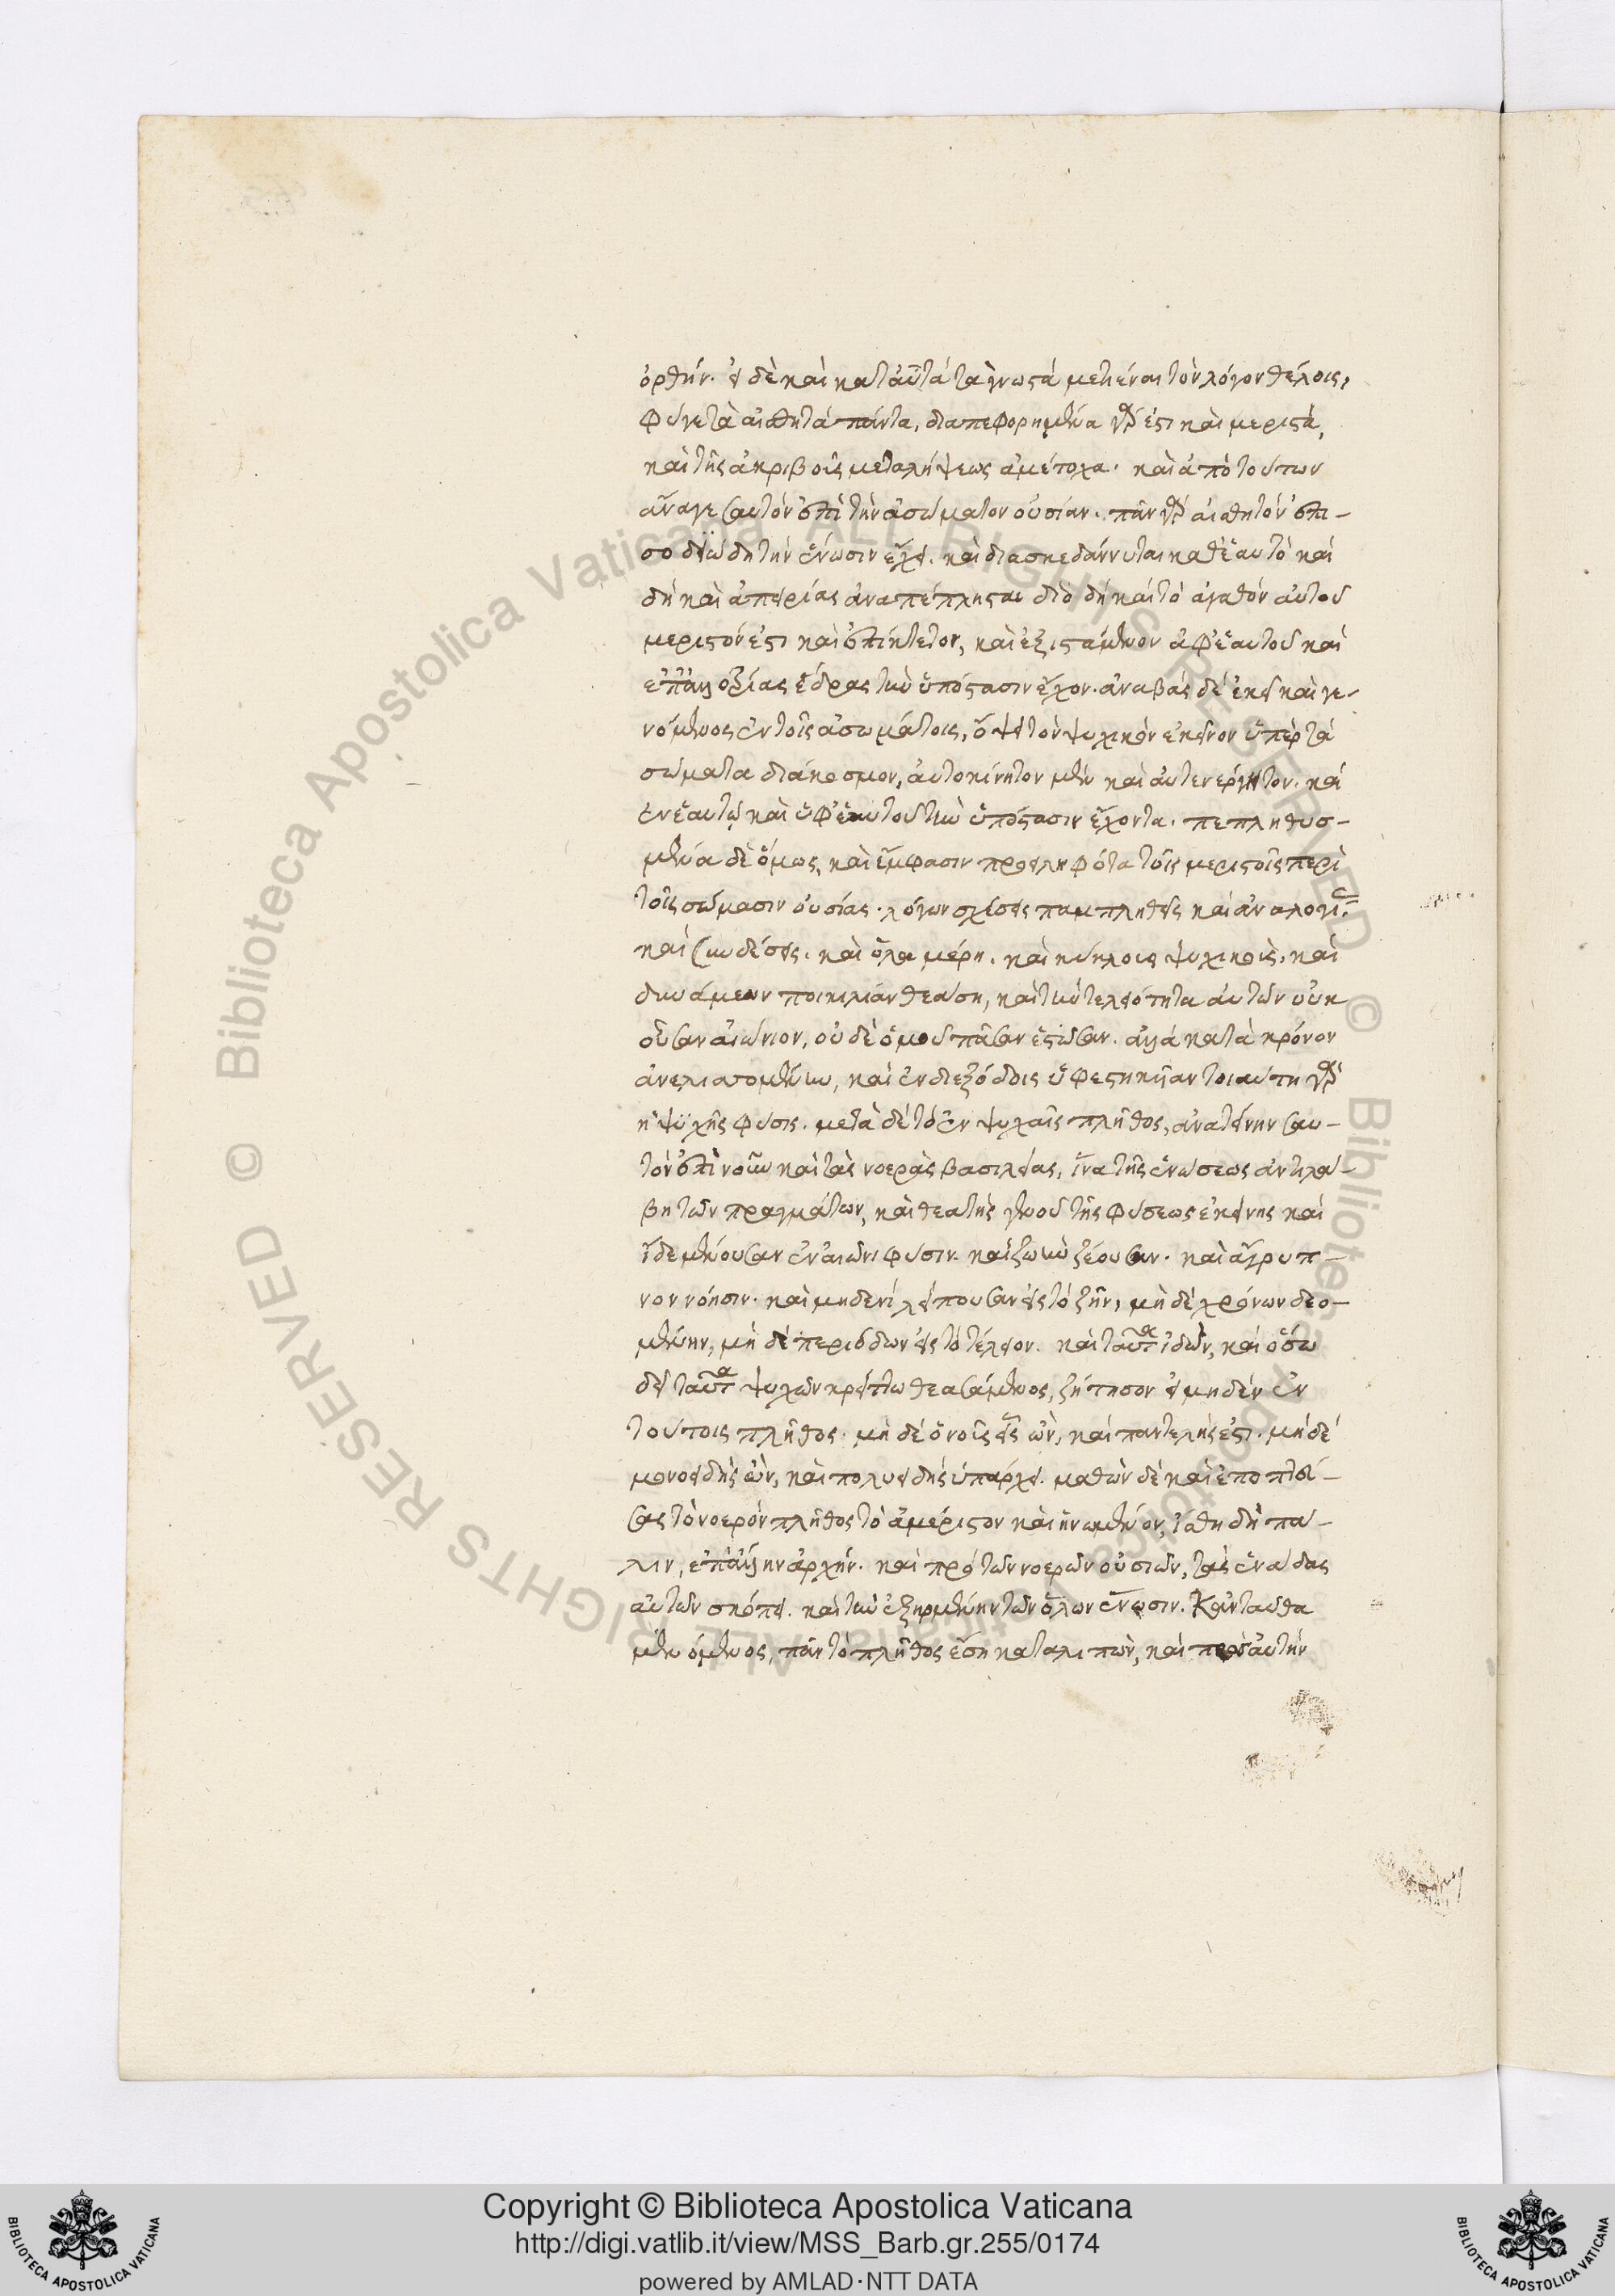 ὀρθήν. εἰ δὲ καὶ κατ' αὐτὰ τὰ γνωστὰ μετιέναι τὸν λόγον θέλοις,
φύγε τὰ αἰσθητὰ πάντα, διαπεφορημένα γάρ ἐστι καὶ μεριστά,
καὶ τῆς ἀκριβοῦς μεταλήψεως ἀμέτοχα. καὶ ἀπὸ τούτων
ἄναγε σαυτὸν ἐπὶ τὴν ἀσώματον οὐσίαν. πᾶν γὰρ αἰσθητὸν ἐπι-
σοδιώδη τὴν ἕνωσιν ἔχει. καὶ διασκεδάννυται καθ' ἑαυτὸ καὶ
δὴ καὶ ἀπειρίας ἀναπέπλησται διὸ δὴ καὶ τὸ ἀγαθὸν αὐτοῦ
μεριστόν ἐστι καὶ ἐπίκτητον, καὶ ἐξιστάμενον ἀφ' ἑαυτοῦ καὶ
ἐπ' ἀλλοτρίας ἕδρας τὴν ὑπόστασιν ἔχον. ἀναβὰς δὲ ἐκεῖ καὶ γε-
νόμενος ἐν τοῖς ἀσωμάτοις, ὄψει τὸν ψυχικὸν ἐκεῖνον ὑπὲρ τὰ
σώματα διάκοσμον, αὐτοκίνητον μὲν καὶ αὐτενέργητον. καὶ
ἐν ἑαυτῷ καὶ ὑφ' ἑαυτοῦ τὴν ὑπόστασιν ἔχοντα. πεπληθυσ-
μένα δὲ ὅμως, καὶ ἔμφασιν προσειληφότα τοῖς μεριστοῖς περὶ
τοῖς σώμασιν οὐσίας. λόγων σχέσεις παμπληθεῖς καὶ ἀναλογίας.
καὶ συνδέσεις. καὶ ὅλα μέρη. καὶ κύκλους ψυχικοὺς. καὶ
δυνάμεων ποικιλίαν θεάσῃ, καὶ τὴν τελειότητα αὐτῶν οὐκ
οὖσαν αἰώνιον, οὐδὲ ὁμοῦ πᾶσαν ἑστῶσαν. ἀλλὰ κατὰ χρόνον
ἀνελιττομένην, καὶ ἐν διεξόδοις ὑφεστηκυῖαν τοιαύτη γὰρ
ἡ ψυχῆς φύσις. μετὰ δὲ τὸ ἐν ψυχαῖς πλῆθος, ἀνατείνην σαυ-
τὸν ἐπὶ νοῦν καὶ τὰς νοερὰς βασιλείας, ἵνα τῆς ἑνώσεως ἀντιλά-
βῃ τῶν πραγμάτων, καὶ θεατὴς γενοῦ τῆς φύσεως ἐκείνης καὶ
ἴδε μένουσαν ἐν αἰῶνι φύσιν. καὶ ζωὴν ζέουσαν. καὶ ἄγρυπ-
νον νόησιν. καὶ μηδενὶ λείπουσαν εἰς τὸ ζῆν, μὴ δὲ χρόνων δεο-
μένην, μὴ δὲ περιόδων εἰς τὸ τέλειον. καὶ ταῦτα ἰδὼν, καὶ ὅσῳ
δεῖ ταῦτα ψυχῶν κρείττω θεασάμενος, ζήτησον εἰ μηδὲν ἐν
τούτοις πλῆθος. μὴ δὲ ὁ νοῦς εἷς ὢν, καὶ παντελής ἐστι. μὴ δὲ
μονοειδὴς ὢν, καὶ πολυειδὴς ὑπάρχει. μαθὼν δὲ καὶ ἐποπτεύ-
σας τὸ νοερὸν πλῆθος τὸ ἀμέριστον καὶ ἡνωμένον, ἴσθη δὴ πά-
λιν, ἐπ' ἄλλην ἀρχήν. καὶ πρὸ τῶν νοερῶν οὐσιῶν, τὰς ἑνάδας
αὐτῶν σκόπει. καὶ τὴν ἐξῃρημένην τῶν ὅλων ἕνωσιν. κἀνταῦθα
μὲν ὀμένος, πᾶν τὸ πλῆθος ἔσῃ καταλιπὼν, καὶ πρὸς αὐτὴν
Copyright © Biblioteca Apostolica Vaticana
http://digi.vatlib.it/view/MSS_Barb.gr.255/0174
powered by AMLAD·NTT DATA